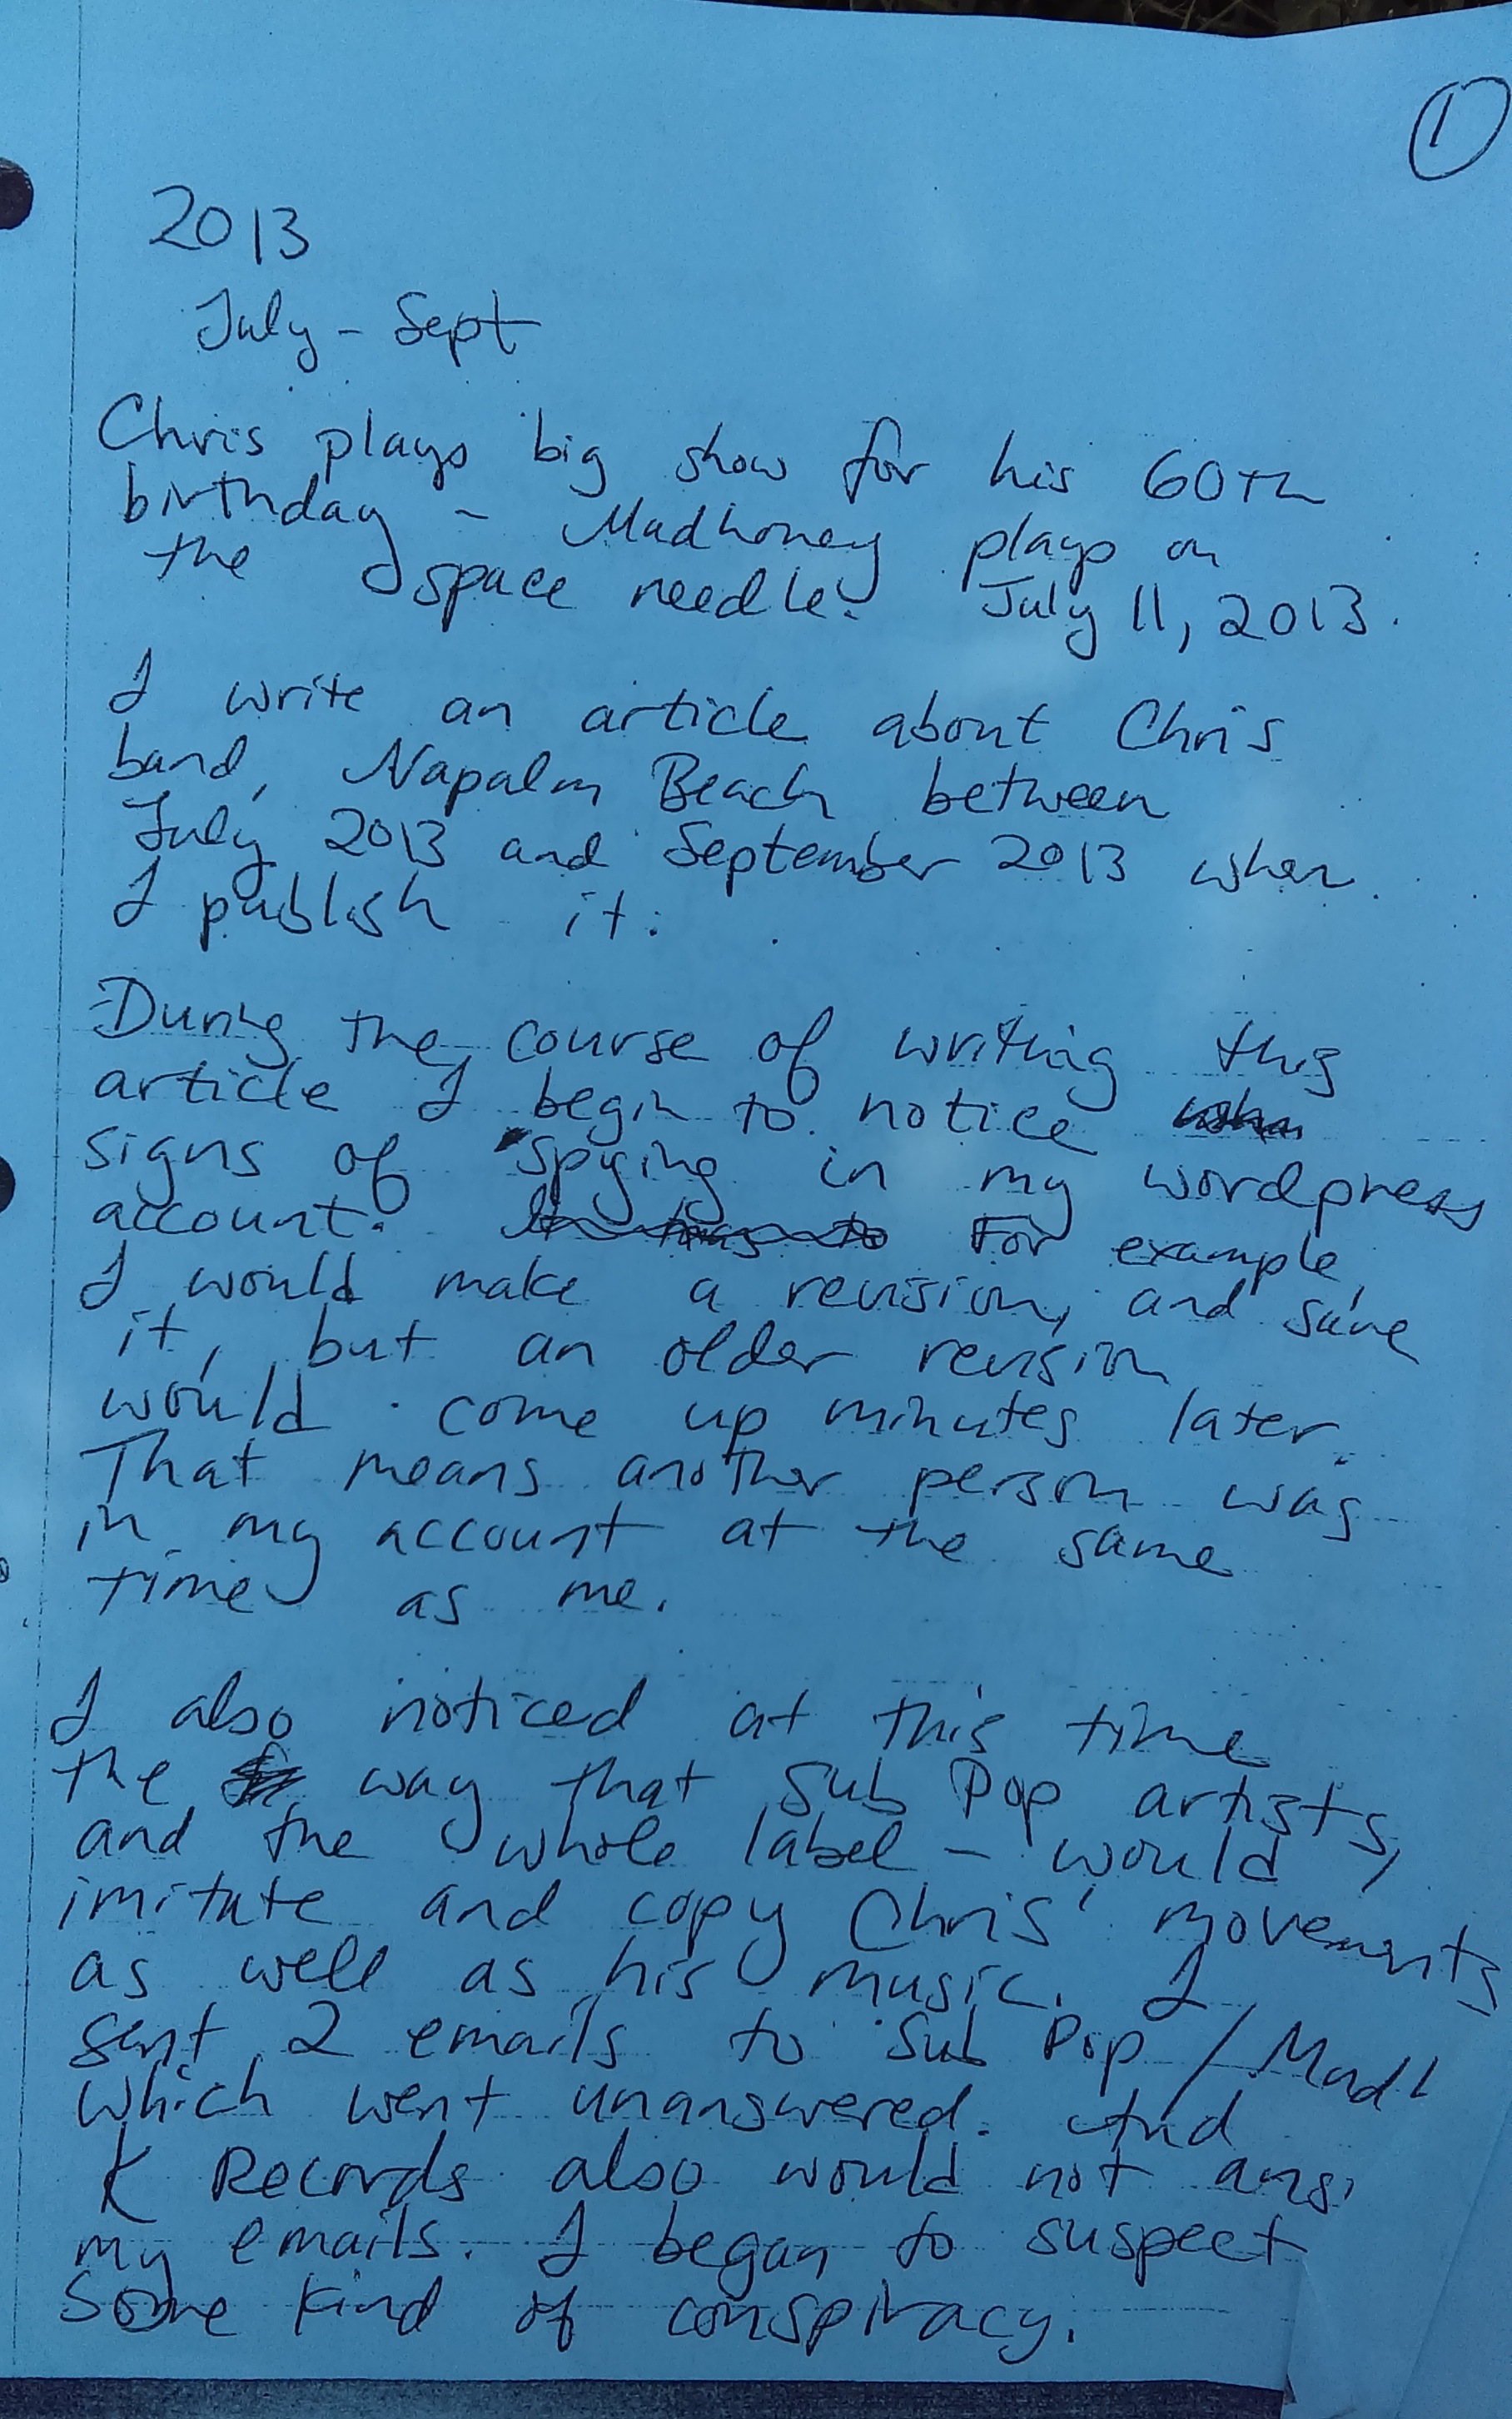 1
2013
July - Sept
Chris plays big show for his 60th
birthday - Mudhoney plays on
the space needle. July 11, 2013.
I write an article about Chris
band, Napalm Beach between
July 2013 and September 2013 when
I publish it.
During the course of writing this
article I begin to notice
signs of spying in my wordpress
account. For example,
I would make a revision, and save
it, but an older revision
would come up minutes later.
That means another person was
in my account at the same
time as me.
I also noticed at this time
the way that Sub Pop artists,
and the whole label - would
imitate and copy Chris' movements
as well as his music. I
sent 2 emails to Sub Pop / Mudh
which went unanswered. And
K Records also would not ans
my emails. I began to suspect
some kind of conspiracy.